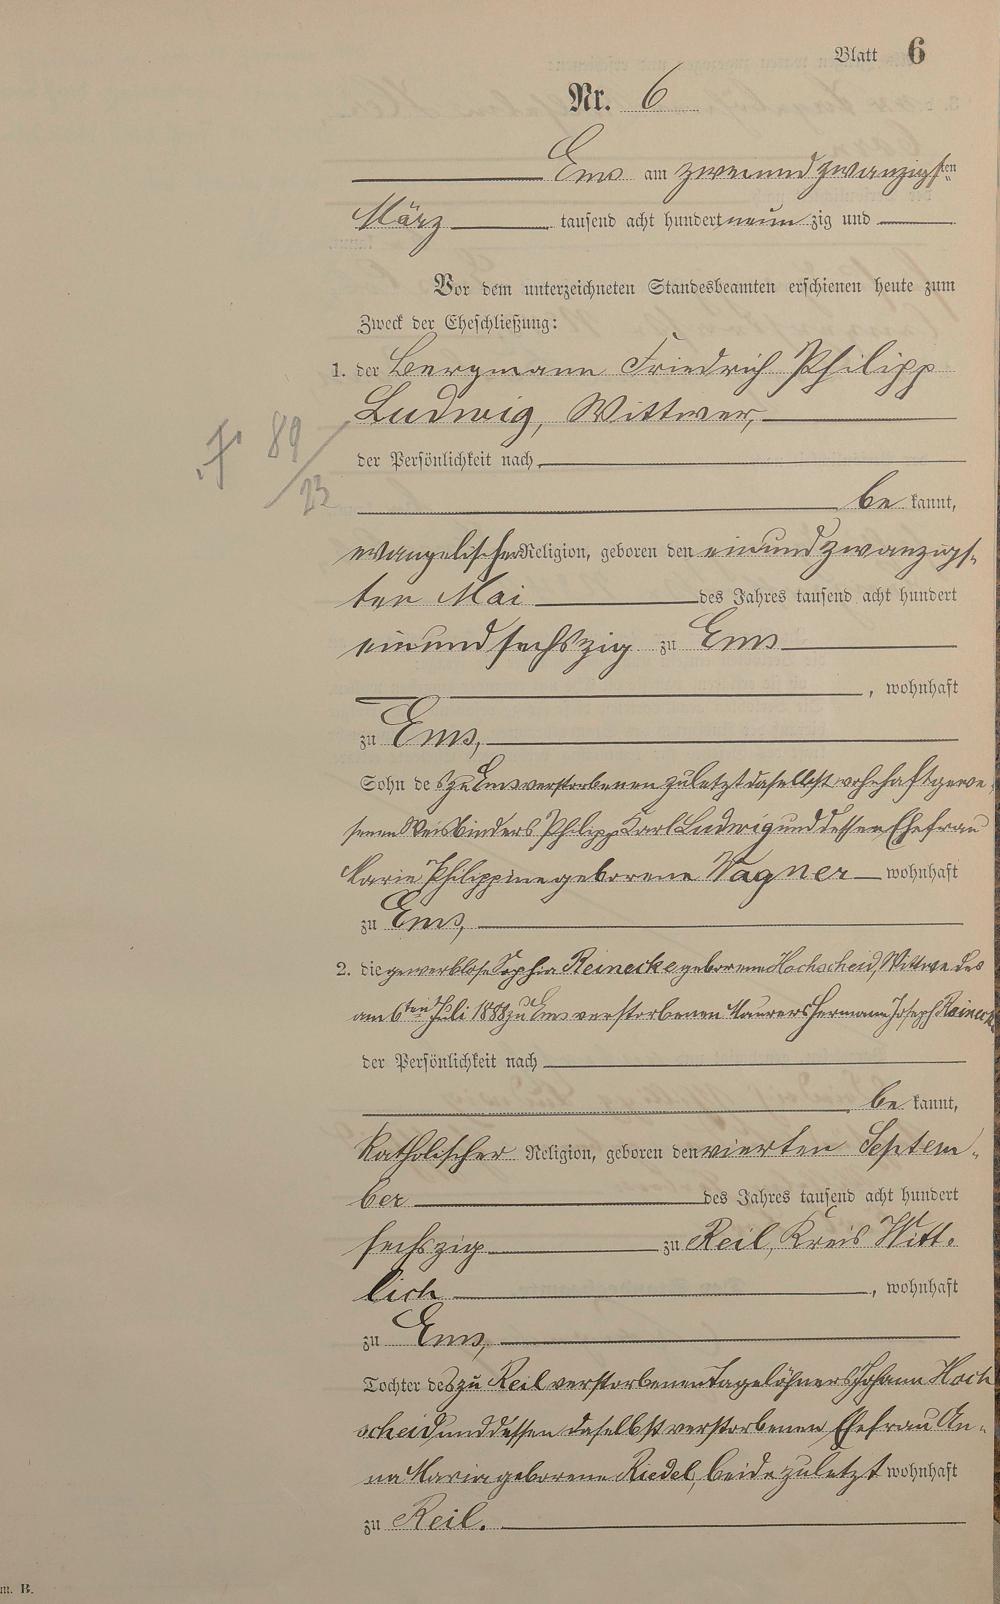 Blatt 6
Nr. 6
Ems am zweiundzwanzigsten
März tausend acht hundert neun zig und
Vor dem unterzeichneten Standesbeamten erschienen heute zum
Zweck der Eheschließung:
1. der Bergmann Friedrich Philipp
Ludwig, Wittwer,
der Persönlichkeit nach
be kannt,
evangelischer Religion, geboren den einundzwanzigs-
ten Mai des Jahres tausend acht hundert
einundsechszig zu Ems
, wohnhaft
zu Ems,
Sohn des zu Ems verstorbenen zuletzt daselbst wohnhaft gewe-
senen Weisbinders Philipp Karl Ludwig und dessen Ehefrau
Marie Philippine geborene Wagner wohnhaft
zu Ems,
2. die gewerblose Sophia Reinecke geborene Hochscheid, Wittwe des
am 6ten Juli 1888 zu Ems verstorbenen Maurers Hermann Joseph Reinecke
der Persönlichkeit nach
be kannt,
katholischer Religion, geboren den vierten Septem-
ber des Jahres tausend acht hundert
sechszig zu Reil, Kreis Witt-
lich, wohnhaft
zu Ems,
Tochter des zu Reil verstorbenen Tagelöhners Johann Hoch
scheid und dessen daselbst verstorbenen Ehefrau An-
na Maria geborene Riedel, beide zuletzt wohnhaft
zu Reil.
89
23
m. B.